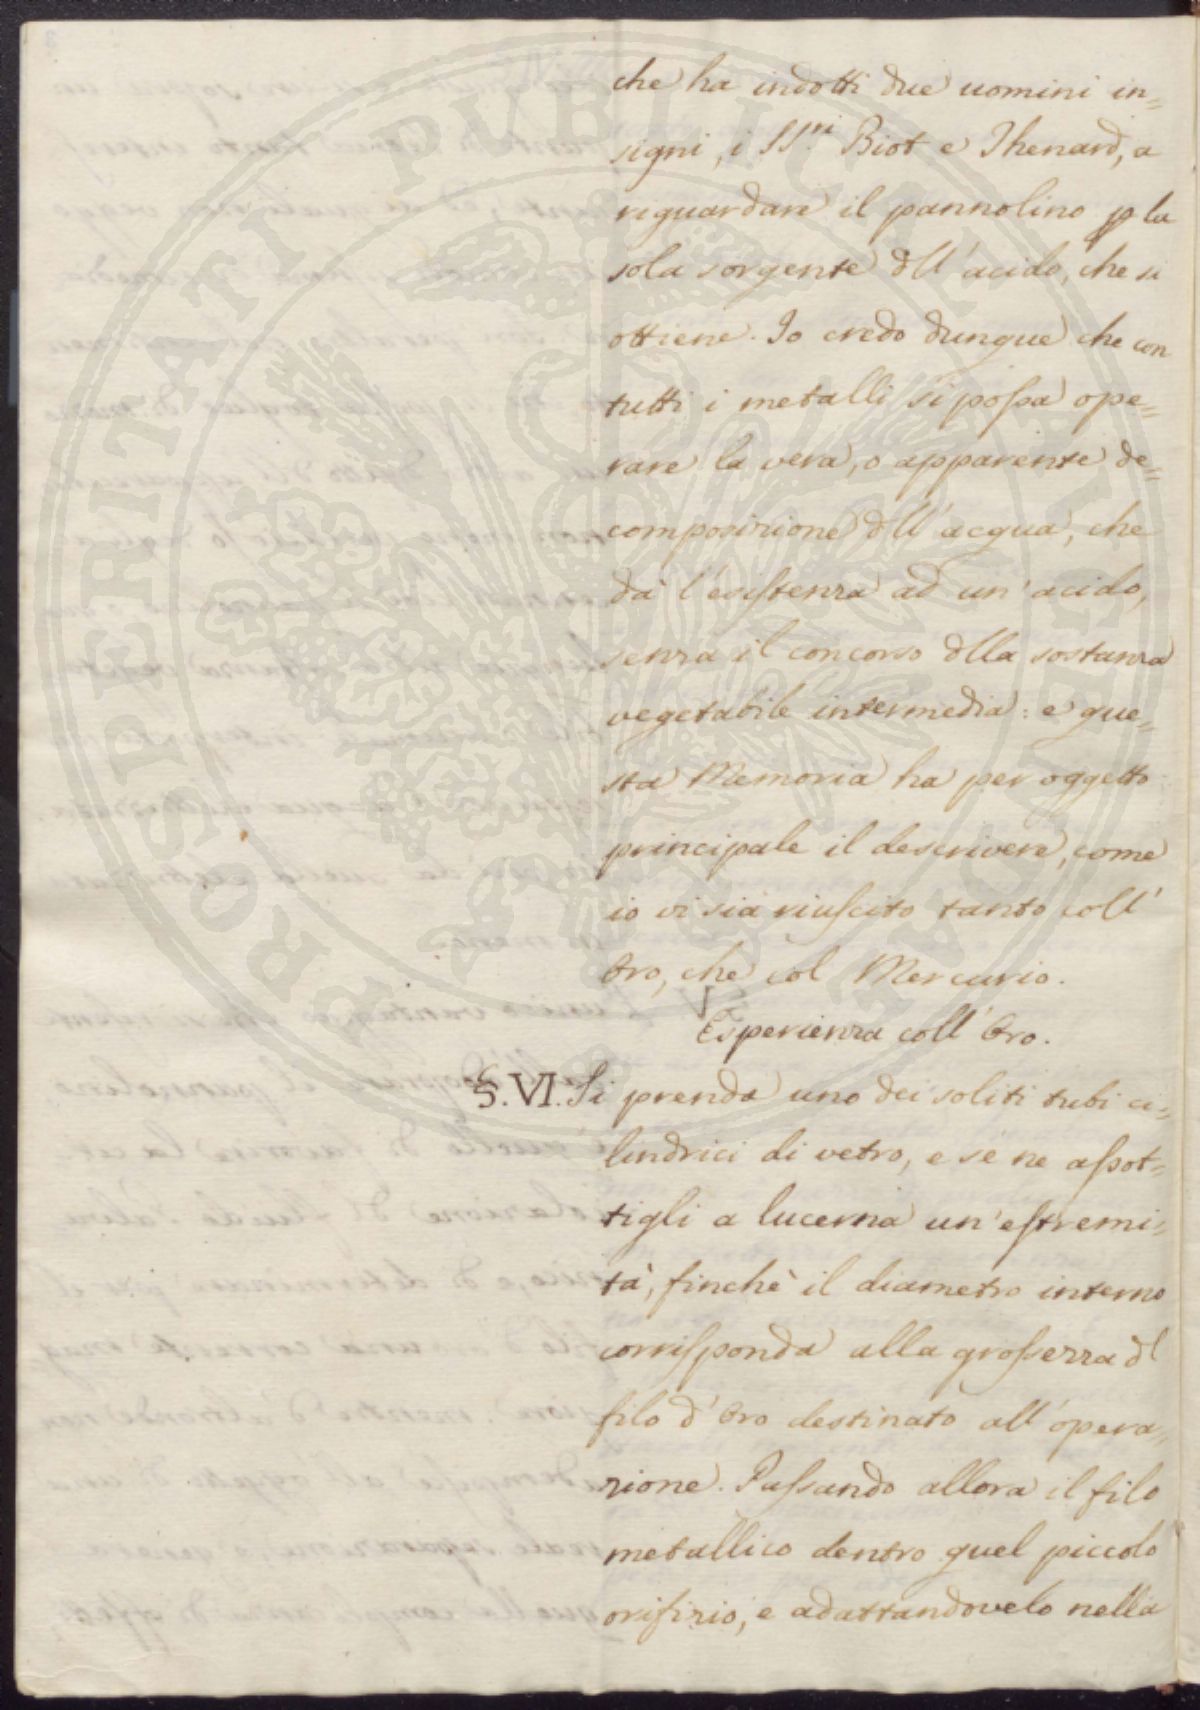 che ha indotti due uomini in=
signi, i SS.ri Biot e Thenard, a
riguardare il pannolino p la
sola sorgente dll' acido, che si
ottiene. Io credo dunque che con
tutti i metalli si possa ope=
rare la vera, o apparente de=
composizione dll' acqua, che
dà l'esistenza ad un' acido,
senza il concorso dlla sostanza
vegetabile intermedia: e que=
sta Memoria ha per oggetto
principale il descrivere, come
io vi sia riuscito tanto coll'
Oro, che col Mercurio.
Esperienza coll' Oro.
§. VI. Si prenda uno dei soliti tubi ci=
lindrici di vetro, e se ne assot=
tigli a lucerna un' estremi=
tà, finchè il diametro interno
corrisponda alla grossezza dl
filo d' Oro destinato all' opera=
zione. Passando allora il filo
metallico dentro quel piccolo
orifizio, e adattandovelo nella
PROSPERITATI PUBLICAE AUGENDAE